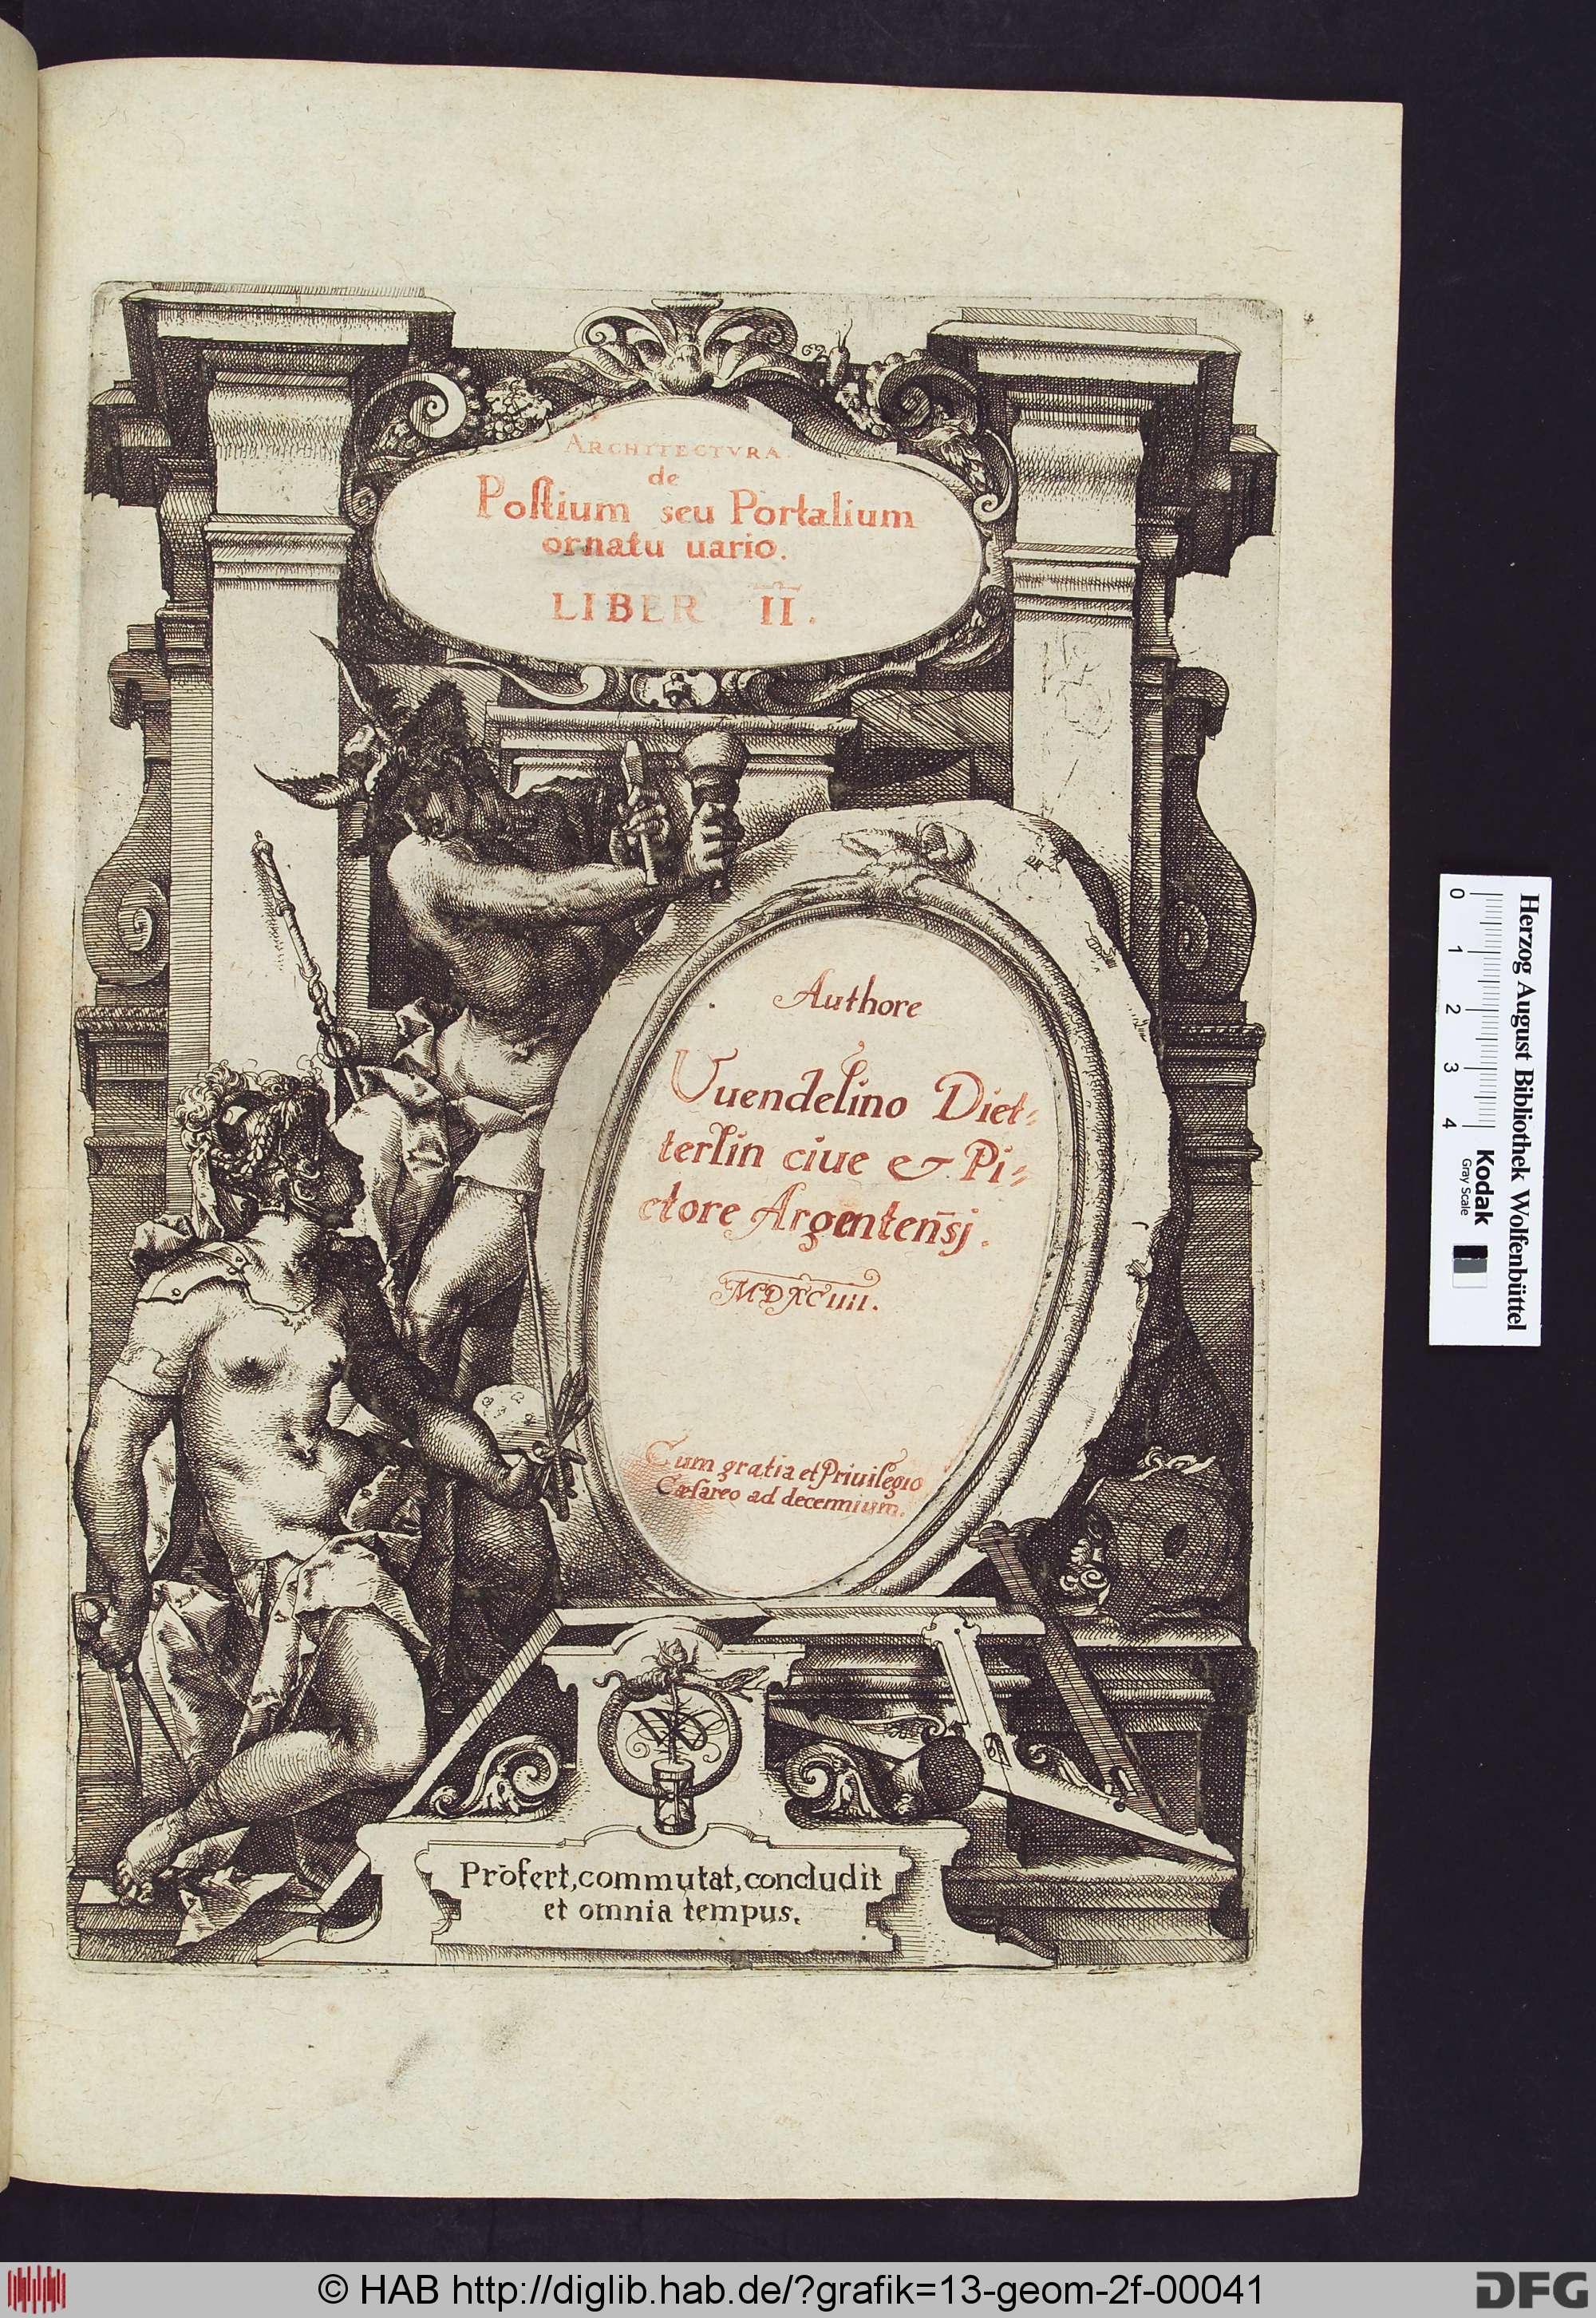 ARCHITECTVRA.
de
Postium seu Portalium
ornatu uario.
LIBER II.
Authore
Vuendelino Diet=
terlin ciue & Pi=
ctore Argenteñsj.
MDXCIIII.
Cum gratia et Priuilegio
Cæsareo ad decennium.
Profert, commutat, concludit
et omnia tempus.
Herzog August Bibliothek Wolfenbüttel
0 1 2 3 4
Kodak
Gray Scale
© HAB http://diglib.hab.de/?grafik=13-geom-2f-00041
DFG